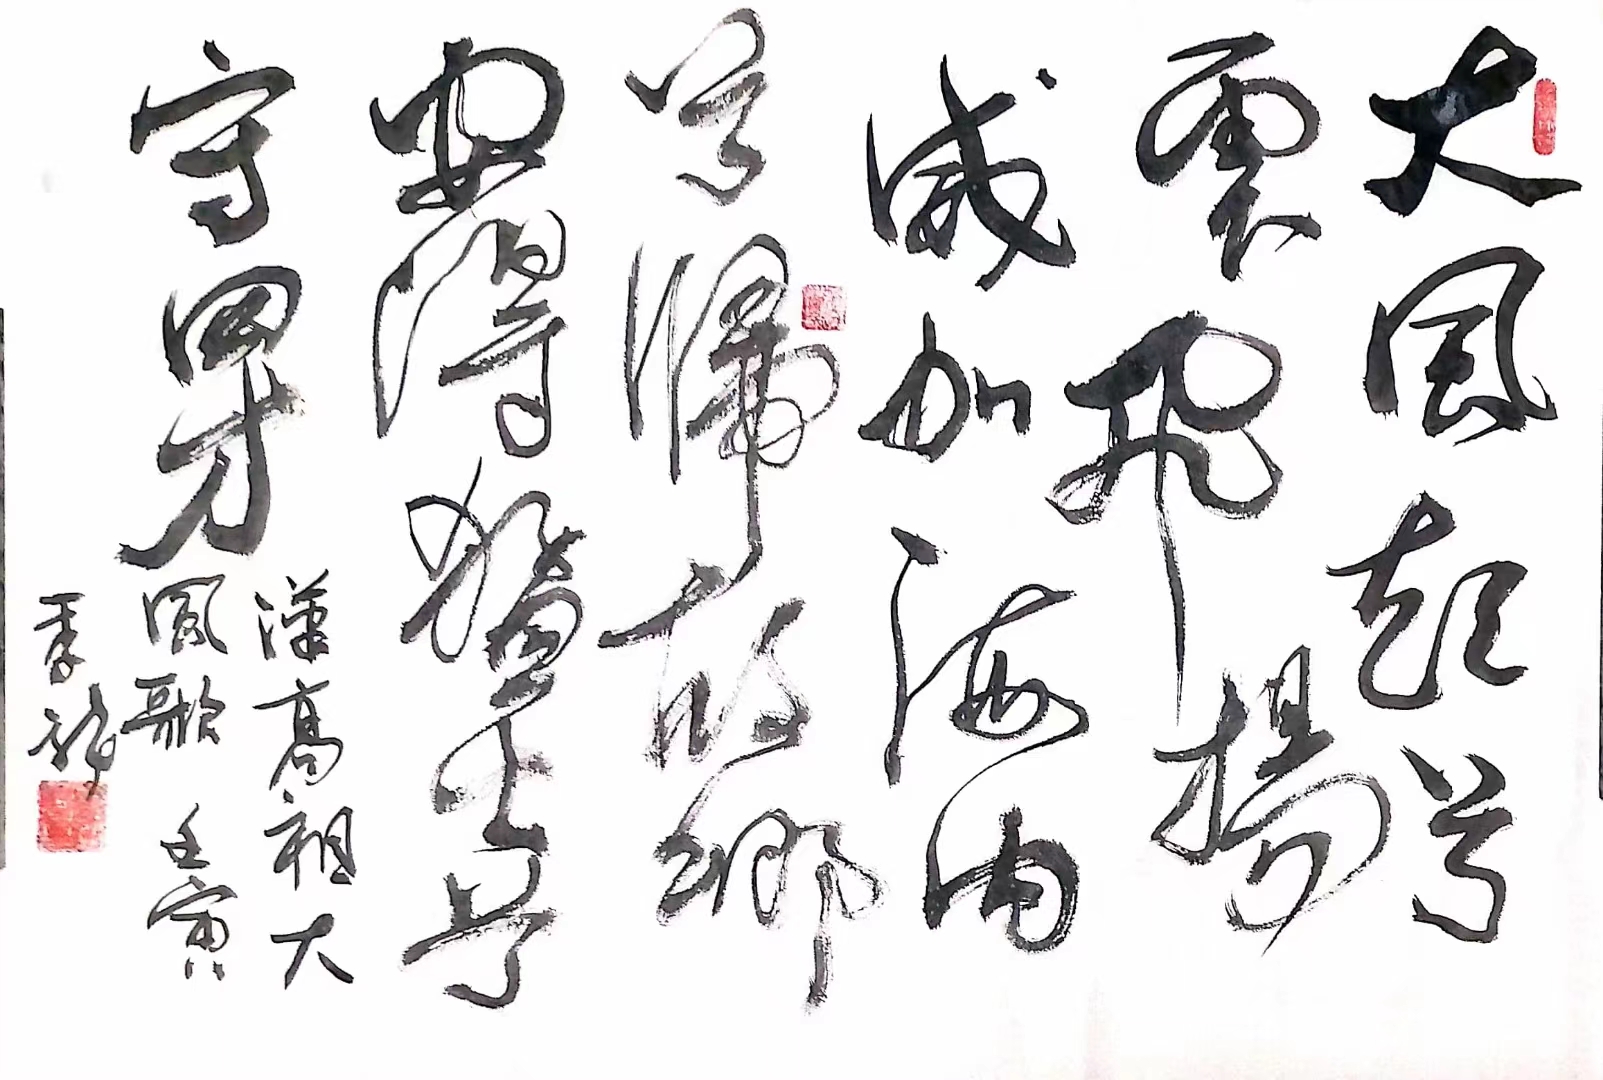 大風起兮
雲飛揚
威加海内
兮歸故鄉
安得猛士兮
守四方
漢高祖大
風歌 壬寅